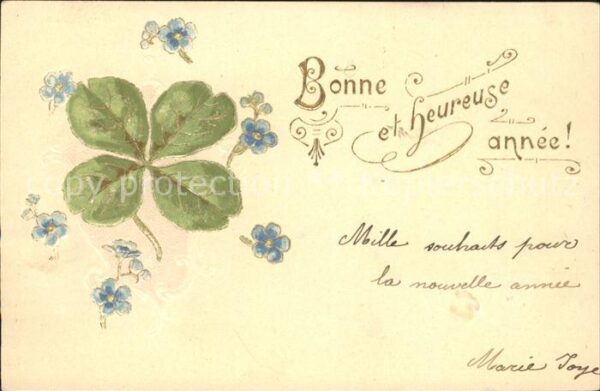 Bonne
et heureuse
année!
copy protection Kopierschutz
Mille souhaits pour
la nouvelle année
Marie Joye